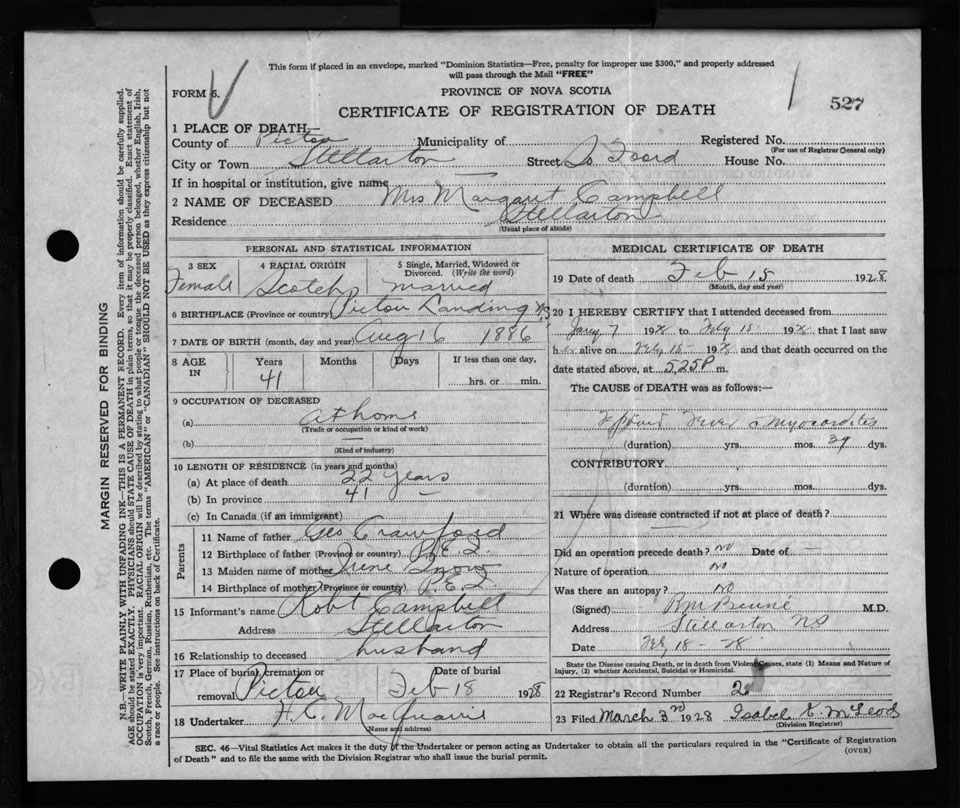 This form if placed in an envelope, marked "Dominion Statistics—Free, penalty for improper use $300," and properly addressed
will pass through the Mail "FREE"
FORM 6.
PROVINCE OF NOVA SCOTIA
527
CERTIFICATE OF REGISTRATION OF DEATH
1 PLACE OF DEATH—
County of Pictou Municipality of Registered No.
(For use of Registrar General only)
City or Town Stellarton Street So Foord House No.
If in hospital or institution, give name
2 NAME OF DECEASED Mrs Margaret Campbell
Residence Stellarton
(Usual place of abode)
PERSONAL AND STATISTICAL INFORMATION
3 SEX 4 RACIAL ORIGIN 5 Single, Married, Widowed or
Divorced. (Write the word)
Female Scotch married
6 BIRTHPLACE (Province or country) Pictou Landing N.S
7 DATE OF BIRTH (month, day and year) Aug 16 1886
8 AGE IN Years Months Days If less than one day,
41 hrs. or min.
9 OCCUPATION OF DECEASED
(a) at home
(Trade or occupation or kind of work)
(b) —
(Kind of industry)
10 LENGTH OF RESIDENCE (in years and months)
(a) At place of death 22 years
(b) In province 41 —
(c) In Canada (if an immigrant)
Parents
11 Name of father Geo Crawford
12 Birthplace of father (Province or country) P.E.I.
13 Maiden name of mother Irene Snow
14 Birthplace of mother (Province or country) P.E.I.
15 Informant's name Robt Campbell
Address Stellarton
16 Relationship to deceased husband
17 Place of burial, cremation or Date of burial
removal Pictou Feb 18 1928
18 Undertaker H.C. MacQuarrie
(Name and address)
MEDICAL CERTIFICATE OF DEATH
19 Date of death Feb 15 1928
(Month, day and year)
20 I HEREBY CERTIFY that I attended deceased from
Jany 7 192 to Feby 15- 192, that I last saw
her alive on Feby 15- 192 and that death occurred on the
date stated above, at 5.25 P m.
The CAUSE of DEATH was as follows:—
Typhoid Fever Myocarditis
(duration) yrs. mos. 39 dys.
CONTRIBUTORY
(duration) yrs. mos. dys.
21 Where was disease contracted if not at place of death?
Did an operation precede death? no Date of —
Nature of operation. no
Was there an autopsy? no
(Signed) M.D.
Address Stellarton NS
Date Feby 18- 28
State the Disease causing Death, or in death from Violent Causes, state (1) Means and Nature of
Injury, (2) whether Accidental, Suicidal or Homicidal.
22 Registrar's Record Number 2
23 Filed March 3rd 1928 Isabel E. McLeod
(Division Registrar)
SEC. 46—Vital Statistics Act makes it the duty of the Undertaker or person acting as Undertaker to obtain all the particulars required in the "Certificate of Registration
of Death" and to file the same with the Division Registrar who shall issue the burial permit. (OVER)
MARGIN RESERVED FOR BINDING
N.B.—WRITE PLAINLY WITH UNFADING INK—THIS IS A PERMANENT RECORD. Every item of information should be carefully supplied.
AGE should be stated EXACTLY. PHYSICIANS should STATE CAUSE OF DEATH in plain terms, so that it may be properly classified. Exact statement of
OCCUPATION is very important. RACIAL ORIGIN will be described by stating to what people or tongue the deceased person belonged, whether English, Irish,
Scotch, French, German, Russian, Ruthenian, etc. The terms "AMERICAN" or "CANADIAN" SHOULD NOT BE USED as they express citizenship but not
a race or people. See instructions on back of Certificate.